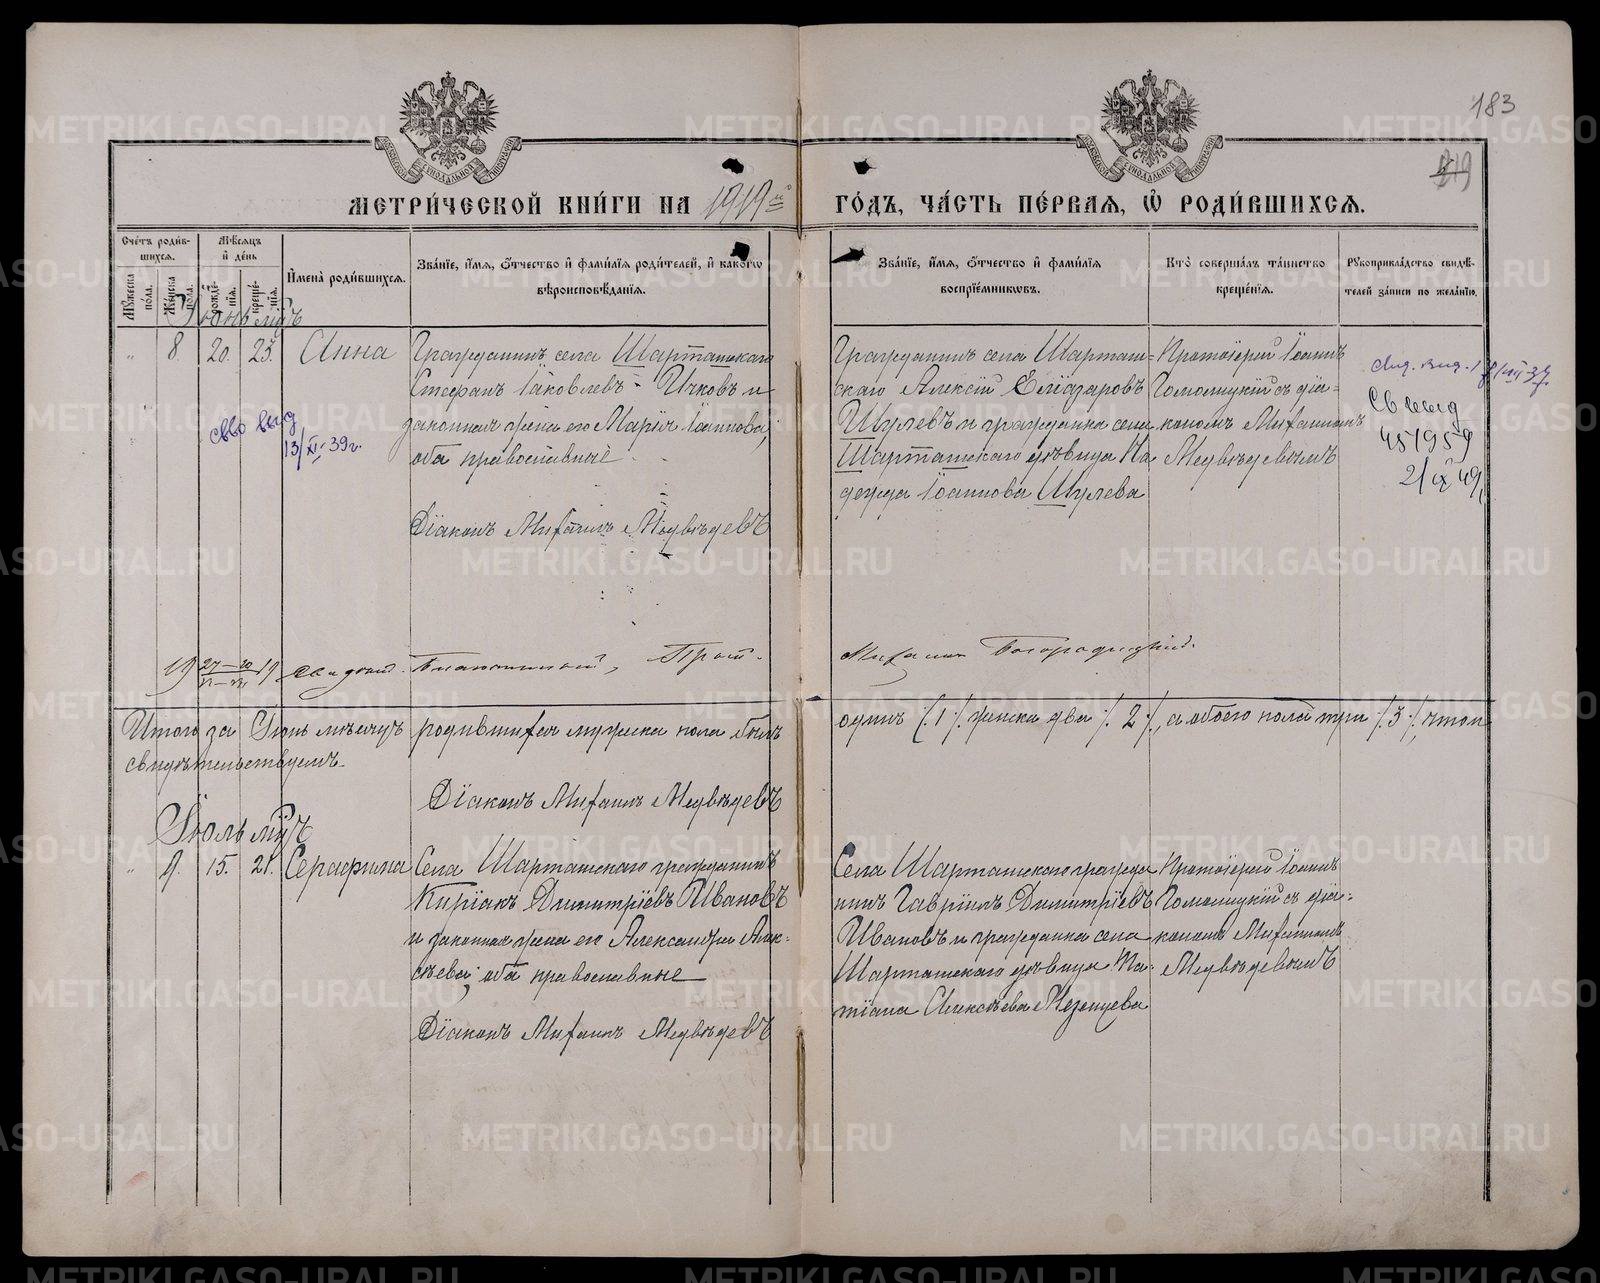 183
219
МЕТРИ́ЧЕСКОЙ КНИ́ГИ НА 1919й ГО́ДЪ, ЧА́СТЬ ПЕ́РВАЯ, Ѡ҆ РОДИ́ВШИХСЯ.
Сче́тъ роди́вшихся.
Му́жеска по́ла.
Же́нска по́ла.
Мѣ́сяцъ и҆ де́нь
рожде́нїя.
креще́нїя.
И҆мена̀ роди́вшихся.
Зва́нїе, и҆́мя, ѻ҆́тчество и҆ фами́лїя роди́телей, и҆ како́гѡ
вѣроисповѣ́данїя.
Зва́нїе, и҆́мя, ѻ҆́тчество и҆ фами́лїя
воспрїе́мниковъ.
Кто̀ соверша́лъ та́инство
креще́нїя.
Рꙋкоприкла́дство свидѣ́-
телей за́писи по жела́нїю.
Іюнь мцъ
" 8. 20. 25. Анна
Гражданинъ села Шарташскаго
Стефанъ Іаковлевъ Ичковъ и
законная жена его Марія Іоаннова,
оба православные
Діаконъ Михаилъ Медвѣдевъ
Гражданинъ села Шарташ-
скаго Алексій Елiазаровъ
Шулевъ и гражданка села
Шарташскаго дѣвица На-
дежда Іоаннова Шулева
Протоіерей Іоаннъ
Гомолицкій съ діа-
кономъ Михаиломъ
Медвѣдевымъ
св-во выд
13/XI-39г.
Св выд
451959
21/IX 49
19 19
Прот.
Михаилъ Богородицкій.
Итого за Іюнь мѣсяцъ родившихся мужска пола былъ одинъ /.1./, женска два /.2./, а обоего пола три /.3./, что и
свидѣтельствуемъ.
Діаконъ Михаилъ Медвѣдевъ
Іюль мцъ
" 9. 15. 21. Серафима
Села Шарташскаго гражданинъ
Киріакъ Димитріевъ Ивановъ
и законная жена его Александра Алек-
сѣева; оба православные
Діаконъ Михаилъ Медвѣдевъ
Села Шарташскаго гражда-
нинъ Гавріилъ Димитріевъ
Ивановъ и гражданка села
Шарташскаго дѣвица Та-
тіана Алексѣева Мезенцева
Протоіерей Іоаннъ
Гомолицкій съ діа-
кономъ Михаиломъ
Медвѣдевымъ
METRIKI.GASO-URAL.RU